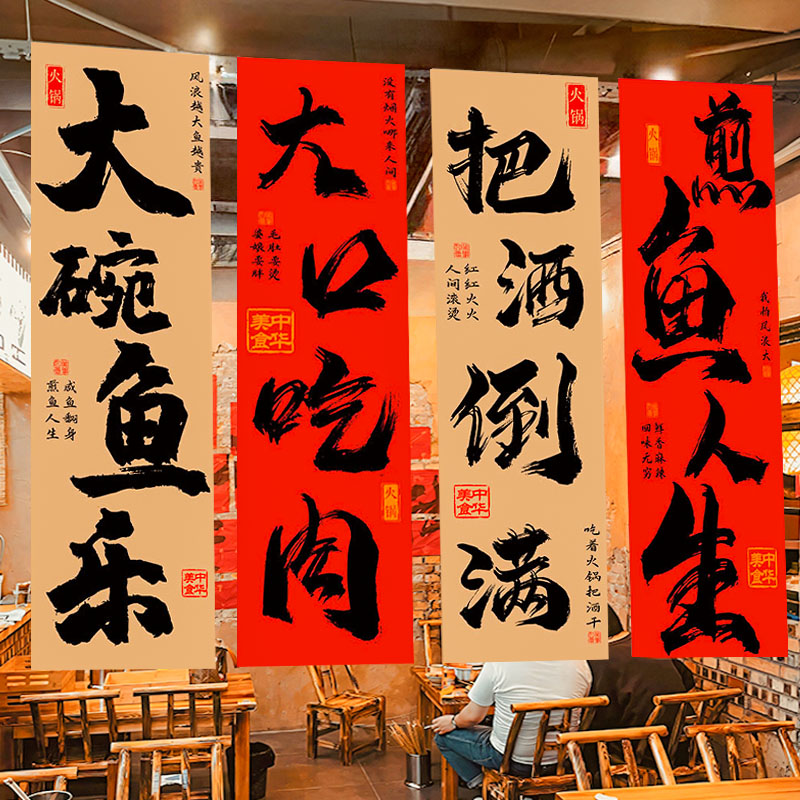 火锅
风浪越大鱼越貴
大碗鱼乐
咸鱼翻身
煎鱼人生
中华
美食
没有烟火哪来人间
大口吃肉
毛肚要烫
婆娘要胖
中华
美食
火锅
火锅
把酒倒满
红红火火
人间滚烫
中华
美食
吃着火锅把酒干
火锅
煎鱼人生
风浪大
鲜香麻辣
回味无穷
中华
美食